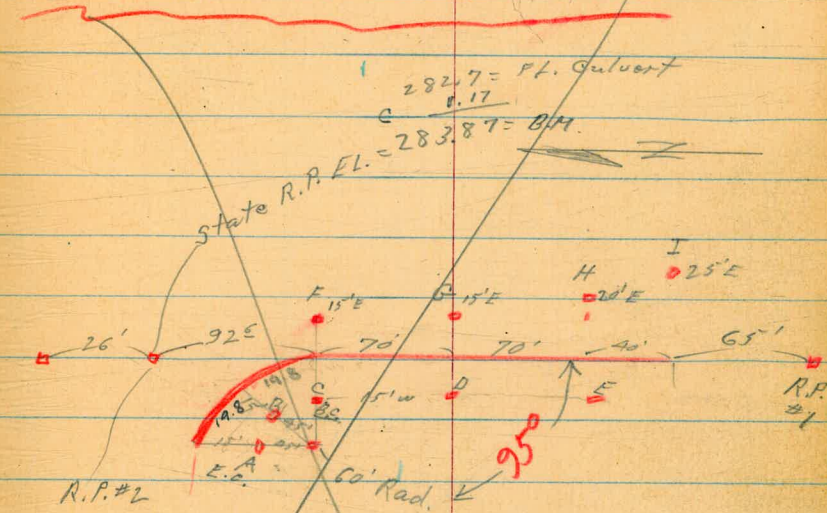 282.7 = FL. Culvert
1.17
C
State R.P. EL. = 283.87 = B.M.
Z
I
25'E
H
20'E
F
15'E
G
15'E
26'
92⁵
70'
70'
40'
65'
19.8
19.8
C
B.C.
15'W
D
E
R.P.
#1
B
15'
A
E.C.
60'
Rad.
95°
R.P. #2